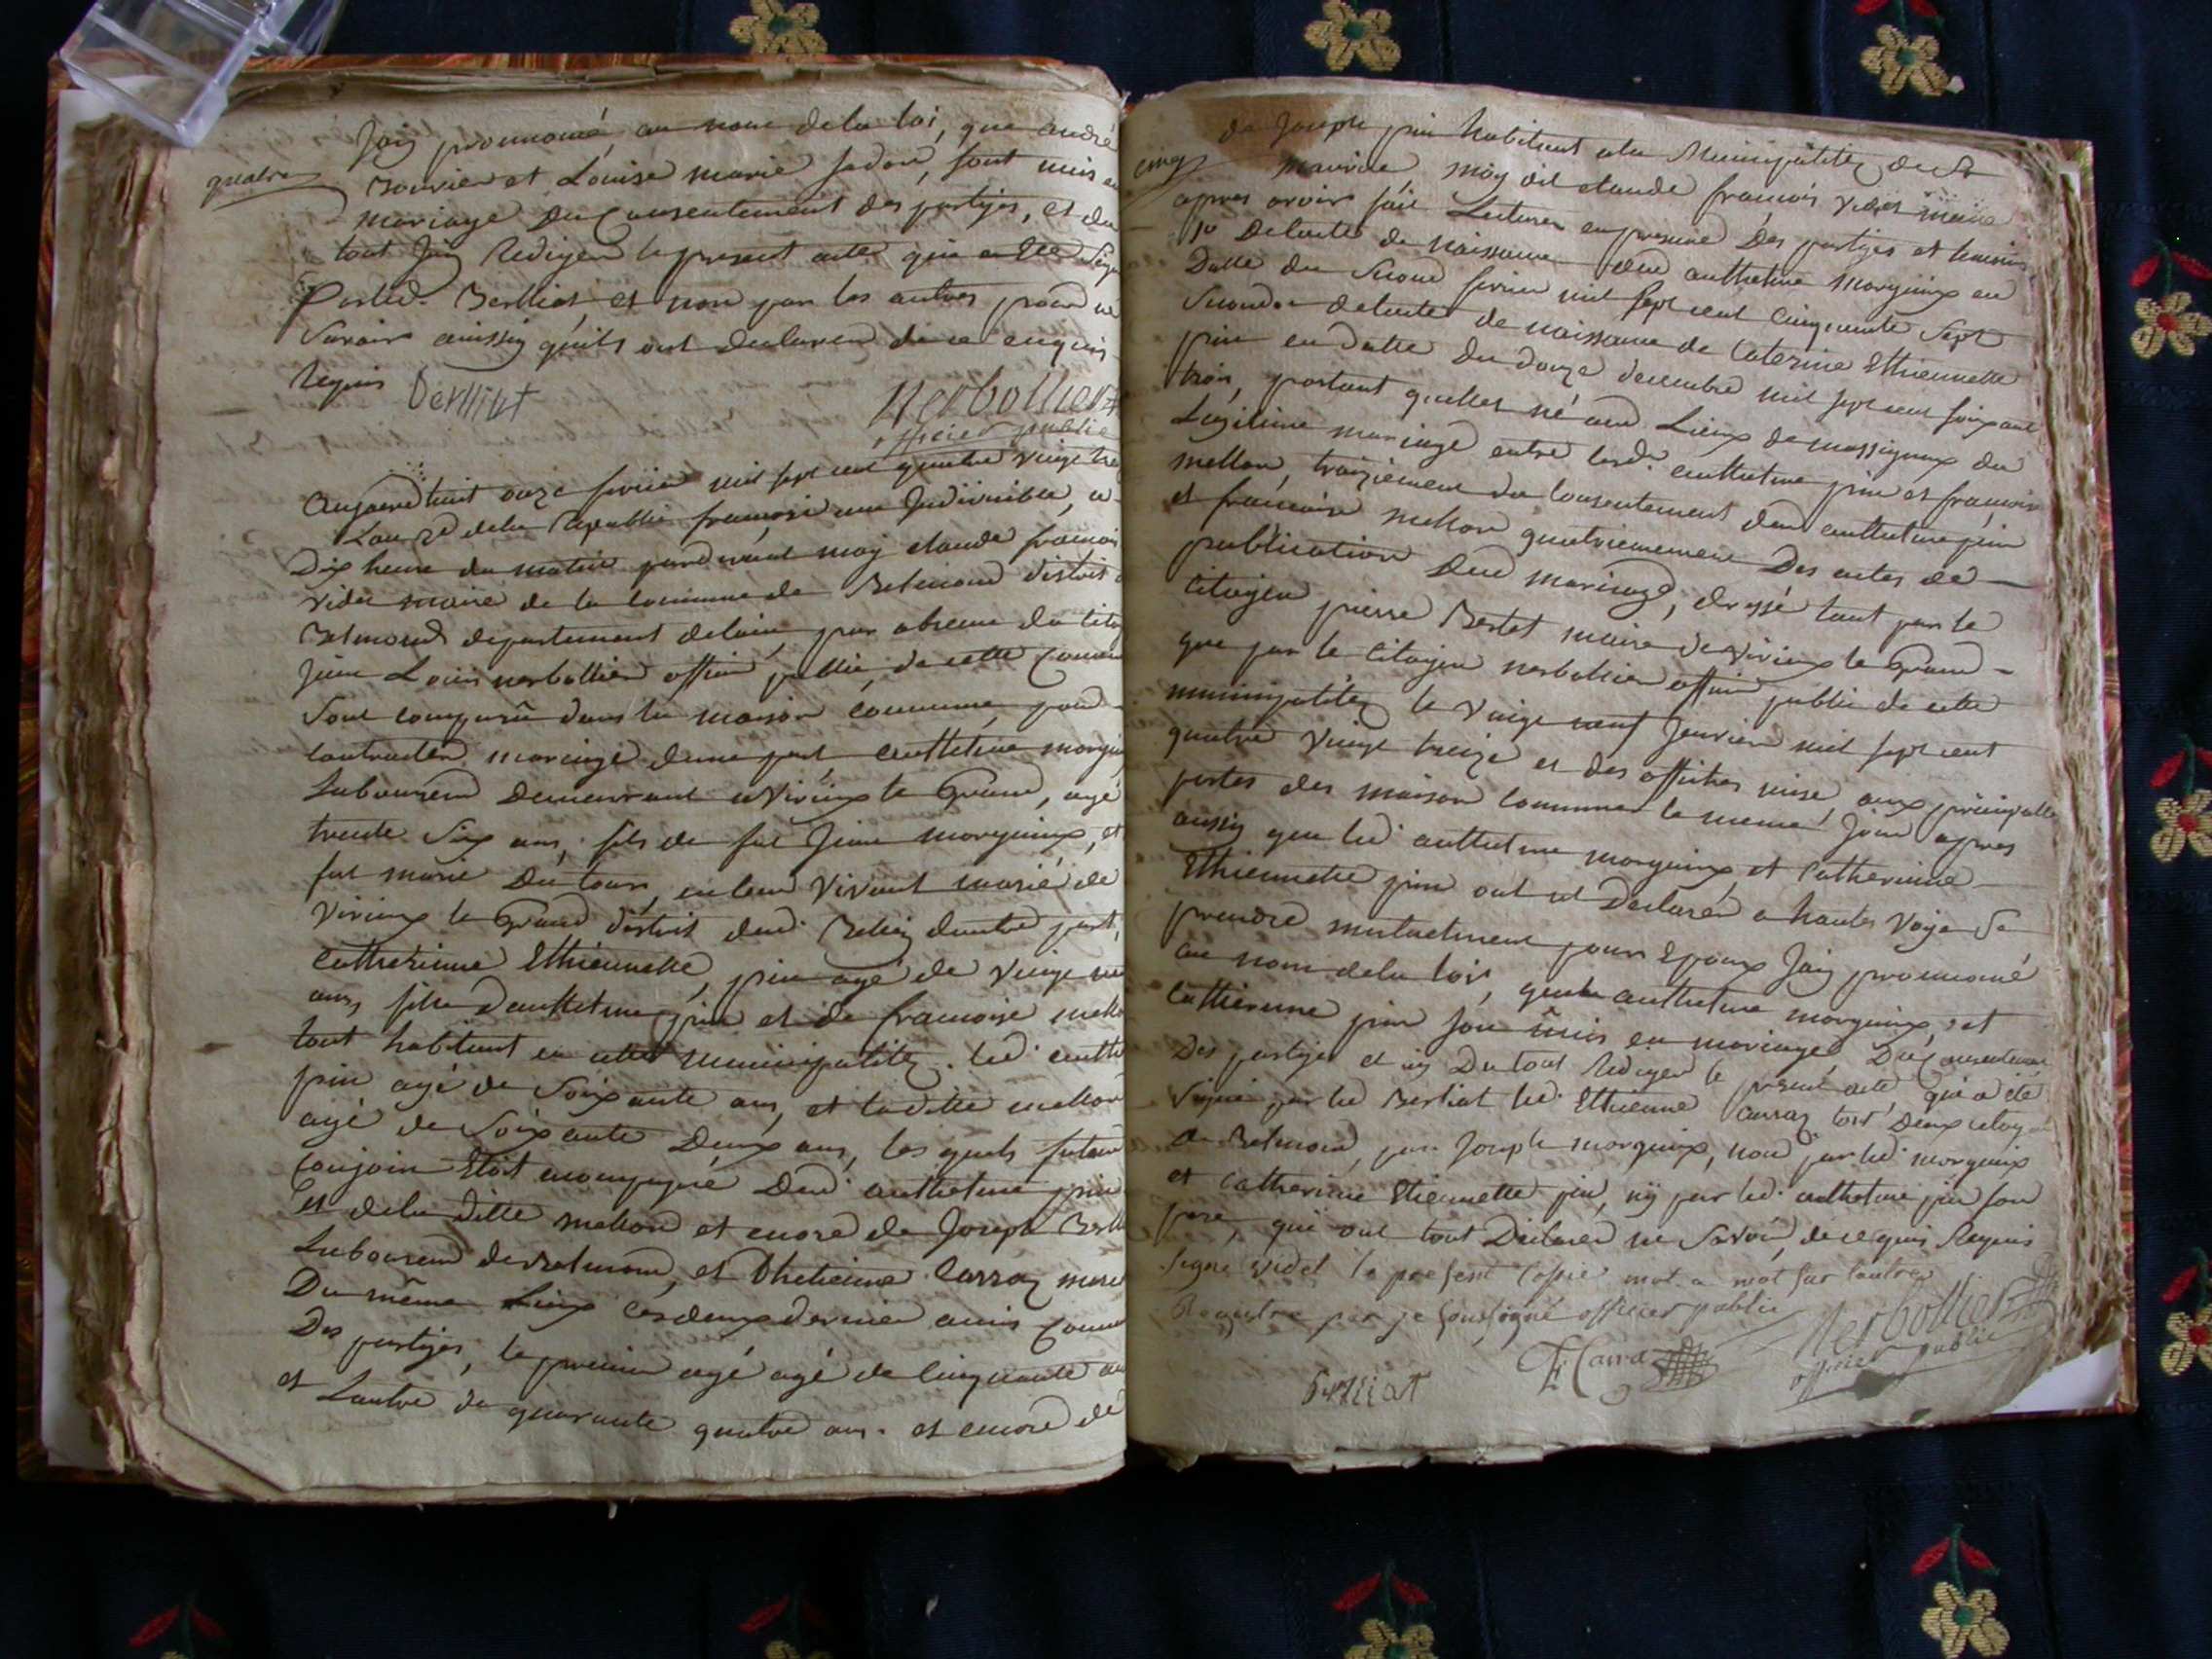 quatre
Jaiz prononcé au nom dela loi, que andré
Bouvier et Louise marie Jadon, sont unis en
mariage Du Consentement des partiyes, et du
tout Jay Rediger le present acte qui a été
Par led. Berliat et non par les autres pour ne
Savoir ainssy qu'ils ont declarer de ce enquis
Requis Berlliat Nerbollier
officier public
Aujourdhuit onze fevrier mil sept cent quatre vingt
Lan 2e dela Republic françoise une Jndivisible, a
Dix heure du matin pardevant moy claude françois
videt maire de la commune de Belmond district
Belmond departement delain, par absence du
Jean Louis nerbollier officier public, de cette
Sont comparû dans la maison commune, pour
contracter mariage dune part anthelme
Laboureur Demeurant a Virieux le Grand, agé
trente Six ans, fils de fut Jean morgnieux, et
fut marie Du tour, en leur vivant marié de
Virieux le Grand district dud. Belley dautre part,
Catherinne Ethiennette, pin agé de vingt
ans fille danthelme pin et de françoise
tout habitant en cette municipalitez. led.
pin agé de Soixante ans, et laditte mellon
agé de Soixante Deux ans, les quels futur
Conjoin Etoit acompagné Dud. anthelme pin
et dela ditte mellon et encore de Joseph
Laboureur de Belmond, et Etheinne Carraz
Du même Lieux ces deux dernier amis
Des partiyes, le premier agé agé de Cinquante
et Lautre de quarante quatre ans. et encore de
cinq
de Joseph pin habitant ala Municipalitez de St
maurice moy dit claude françois videt maire
apres avoir fait Lecture en presence Des partiyes et
1o Delacte de Naissance dud anthelme morgnieux en
Datte du Second fevrier mil sept cent Cinquante Sept
Secondo delacte de naissance de Caterine Ethiennette
pin en datte du douze decembre mil sept cent soixante
trois, portant quelles né aud Lieux de massignieux du
Legitime mariage entre led. anthelme pin et françoise
mellon, troiziemement du Consentement dud anthelme pin
et françoise mellon quatriemement Des actes de
publication Dud mariage, dressé tant par le
Citoyen pierre Bertet maire de Virieux le Grand
que par le Citoyen nerbollier officier public de cette
municipalitez le vingt neuf Janvier mil sept cent
quatre vingt treize et des affiches mise, aux principalle
portes des maison commune le meme Jour apres
aussy que led. anthelme morgnieux et Catherinne
Ethiennette pin ont et Declarer a hautes Voye Se
prendre mutuellement pour Epoux Jay prononcé
au nom dela loix, que anthelme morgnieux, et
Catherinne pin son ûnis en mariage, Du Consentement
Des partiyes et ay Du tout Rediger le present acte, qui a été
Signé par led Berliat led. Ethienne Carraz tout Deux
de Belmond, par Joseph morgnieux, non par led. morgnieux
et Catherine Etiennette pin, ny par led. anthelme pin son
pere, qui ont tout Declarer ne Savoir, de ce quis Requis
Signé videt le present Copié mot a mot sur lautre
Registre par je soussigné officier public Nerbollier
officier public
Berliat E Carra